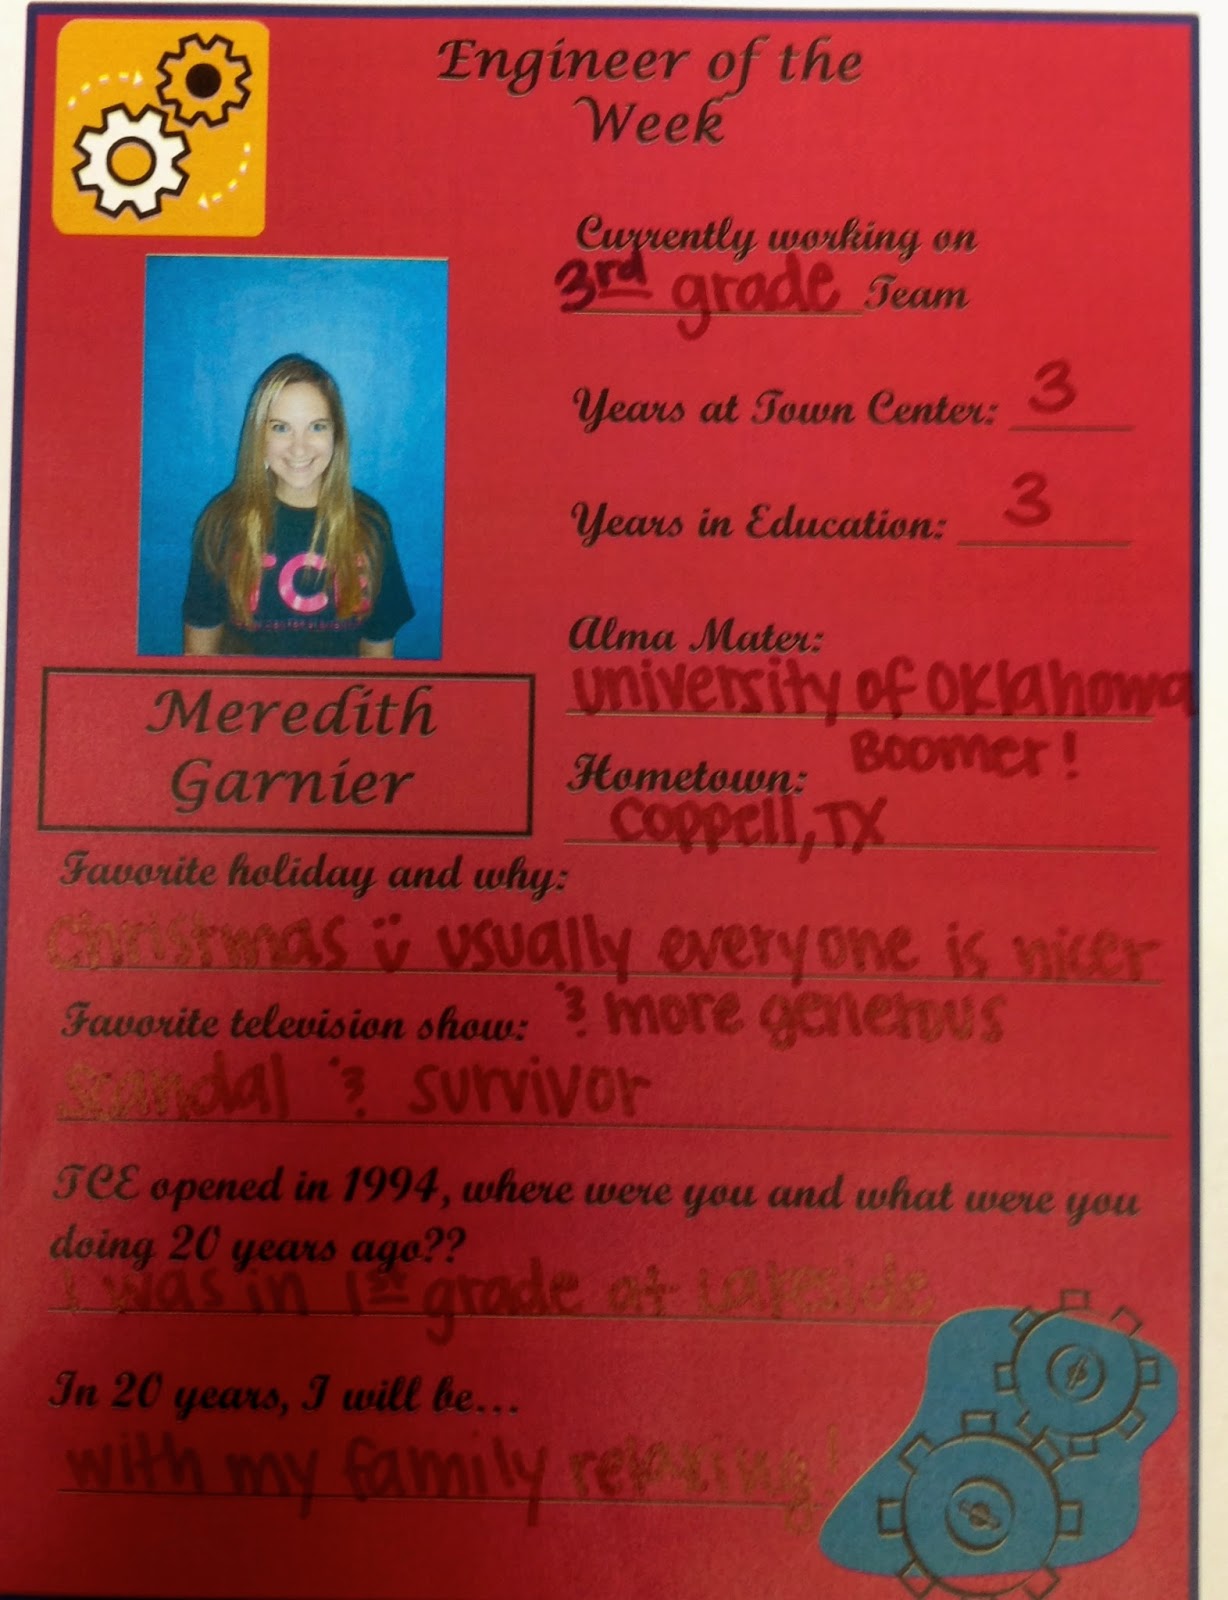 Engineer of the
Week
Currently working on
3rd grade Team
Years at Town Center: 3
Years in Education: 3
TCE
Alma Mater:
university of Oklahoma
Boomer!
Meredith
Garnier
Hometown:
Coppell, TX
Favorite holiday and why:
Christmas ü usually everyone is nicer
& more generous
Favorite television show:
Scandal & Survivor
TCE opened in 1994, where were you and what were you
doing 20 years ago??
I was in 1st grade at Lakeside
In 20 years, I will be...
with my family relaxing!